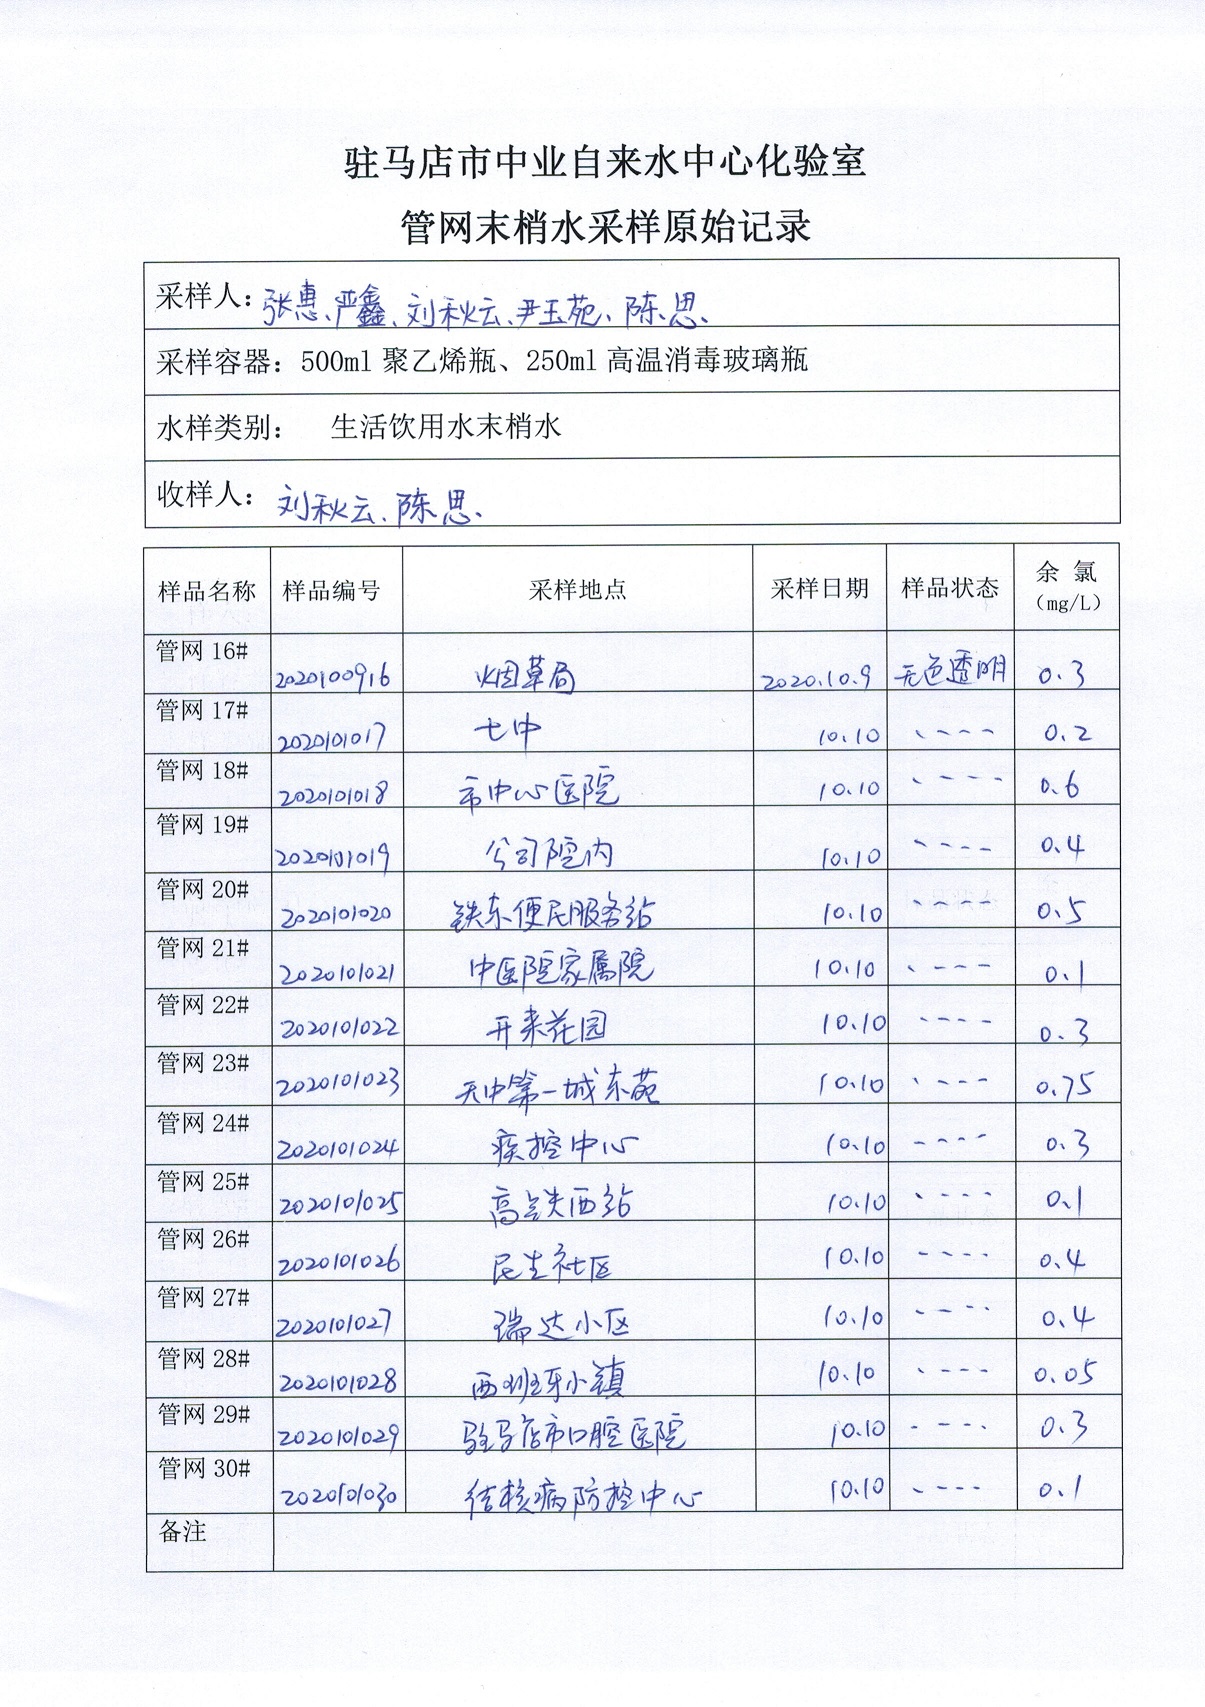 驻马店市中业自来水中心化验室
管网末梢水采样原始记录
采样人：张惠、严鑫、刘秋云、尹玉苑、陈思、
采样容器：500ml 聚乙烯瓶、250ml 高温消毒玻璃瓶
水样类别： 生活饮用水末梢水
收样人：刘秋云、陈思、
样品名称 样品编号 采样地点 采样日期 样品状态 余 氯（mg/L）
管网 16# 2020100916 烟草局 2020.10.9 无色透明 0.3
管网 17# 2020101017 七中 10.10 、--- 0.2
管网 18# 2020101018 市中心医院 10.10 、--- 0.6
管网 19# 2020101019 公司院内 10.10 、--- 0.4
管网 20# 2020101020 铁东便民服务站 10.10 、--- 0.5
管网 21# 2020101021 中医院家属院 10.10 、--- 0.1
管网 22# 2020101022 开来花园 10.10 、--- 0.3
管网 23# 2020101023 天中第一城东苑 10.10 、--- 0.75
管网 24# 2020101024 疾控中心 10.10 ---- 0.3
管网 25# 2020101025 高铁西站 10.10 、--- 0.1
管网 26# 2020101026 民生社区 10.10 ---- 0.4
管网 27# 2020101027 瑞达小区 10.10 ---- 0.4
管网 28# 2020101028 西班牙小镇 10.10 、--- 0.05
管网 29# 2020101029 驻马店市口腔医院 10.10 ---- 0.3
管网 30# 2020101030 结核病防控中心 10.10 、--- 0.1
备注